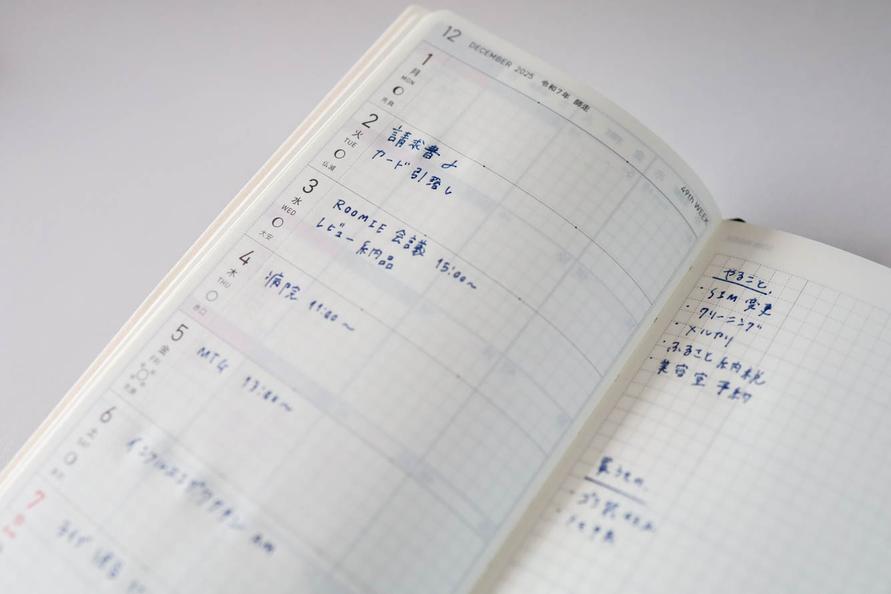 12 DECEMBER 2025 令和7年 師走
49th WEEK
1
月
MON
先負
2
火
TUE
仏滅
請求書〆
カード引落し
3
水
WED
大安
ROOMIE 会議 15:00〜
レビュー系納品
4
木
THU
赤口
病院 11:00〜
5
金
FRI
MTG 13:00〜
6
土
インフルエンザワクチン
7
ライブ
やること
・SIM 変更
・クリーニング
・メルカリ
・ふるさと納税
・美容室 予約
買うもの